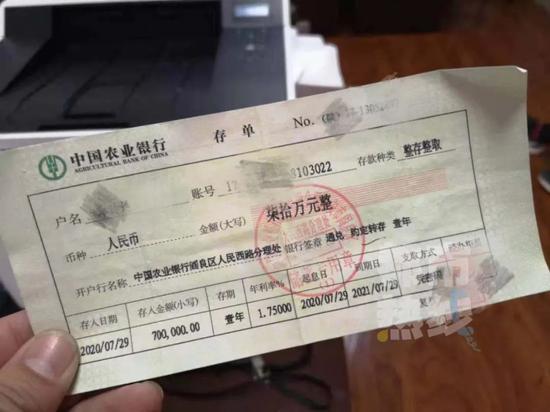 中国农业银行 存单 No.
AGRICULTURAL BANK OF CHINA
户名 账号 17 8103022 存款种类 整存整取
币种 人民币 金额(大写) 柒拾万元整
开户行名称: 中国农业银行阎良区人民西路分理处 银行签章 通兑 约定转存 壹年
存入日期 存入金额(小写) 存期 年利率% 起息日 到期日 支取方式
2020/07/29 700,000.00 壹年 1.75000 2020/07/29 2021/07/29
热线